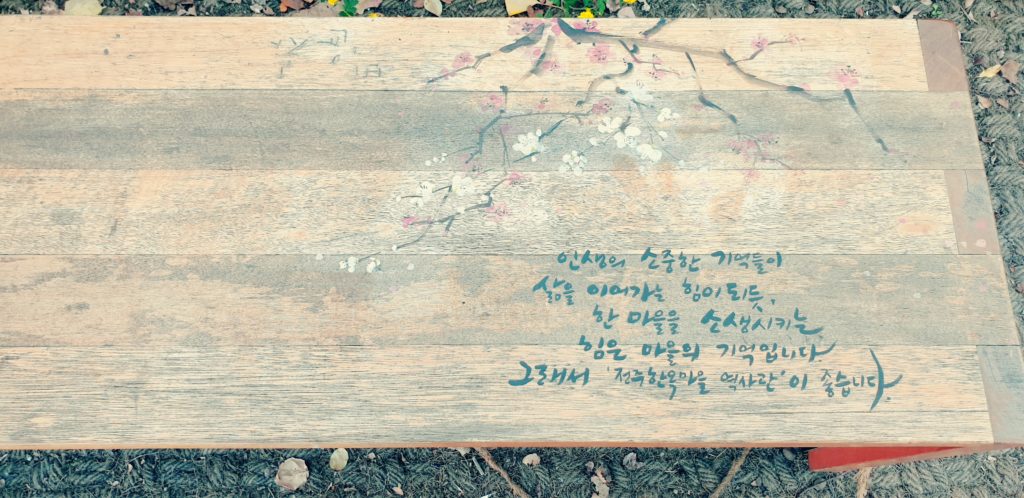 인생의 소중한 기억들이
삶을 이어가는 힘이 되듯,
한 마을을 소생시키는
힘은 마을의 기억입니다
그래서 '전주한옥마을 역사관'이 좋습니다.